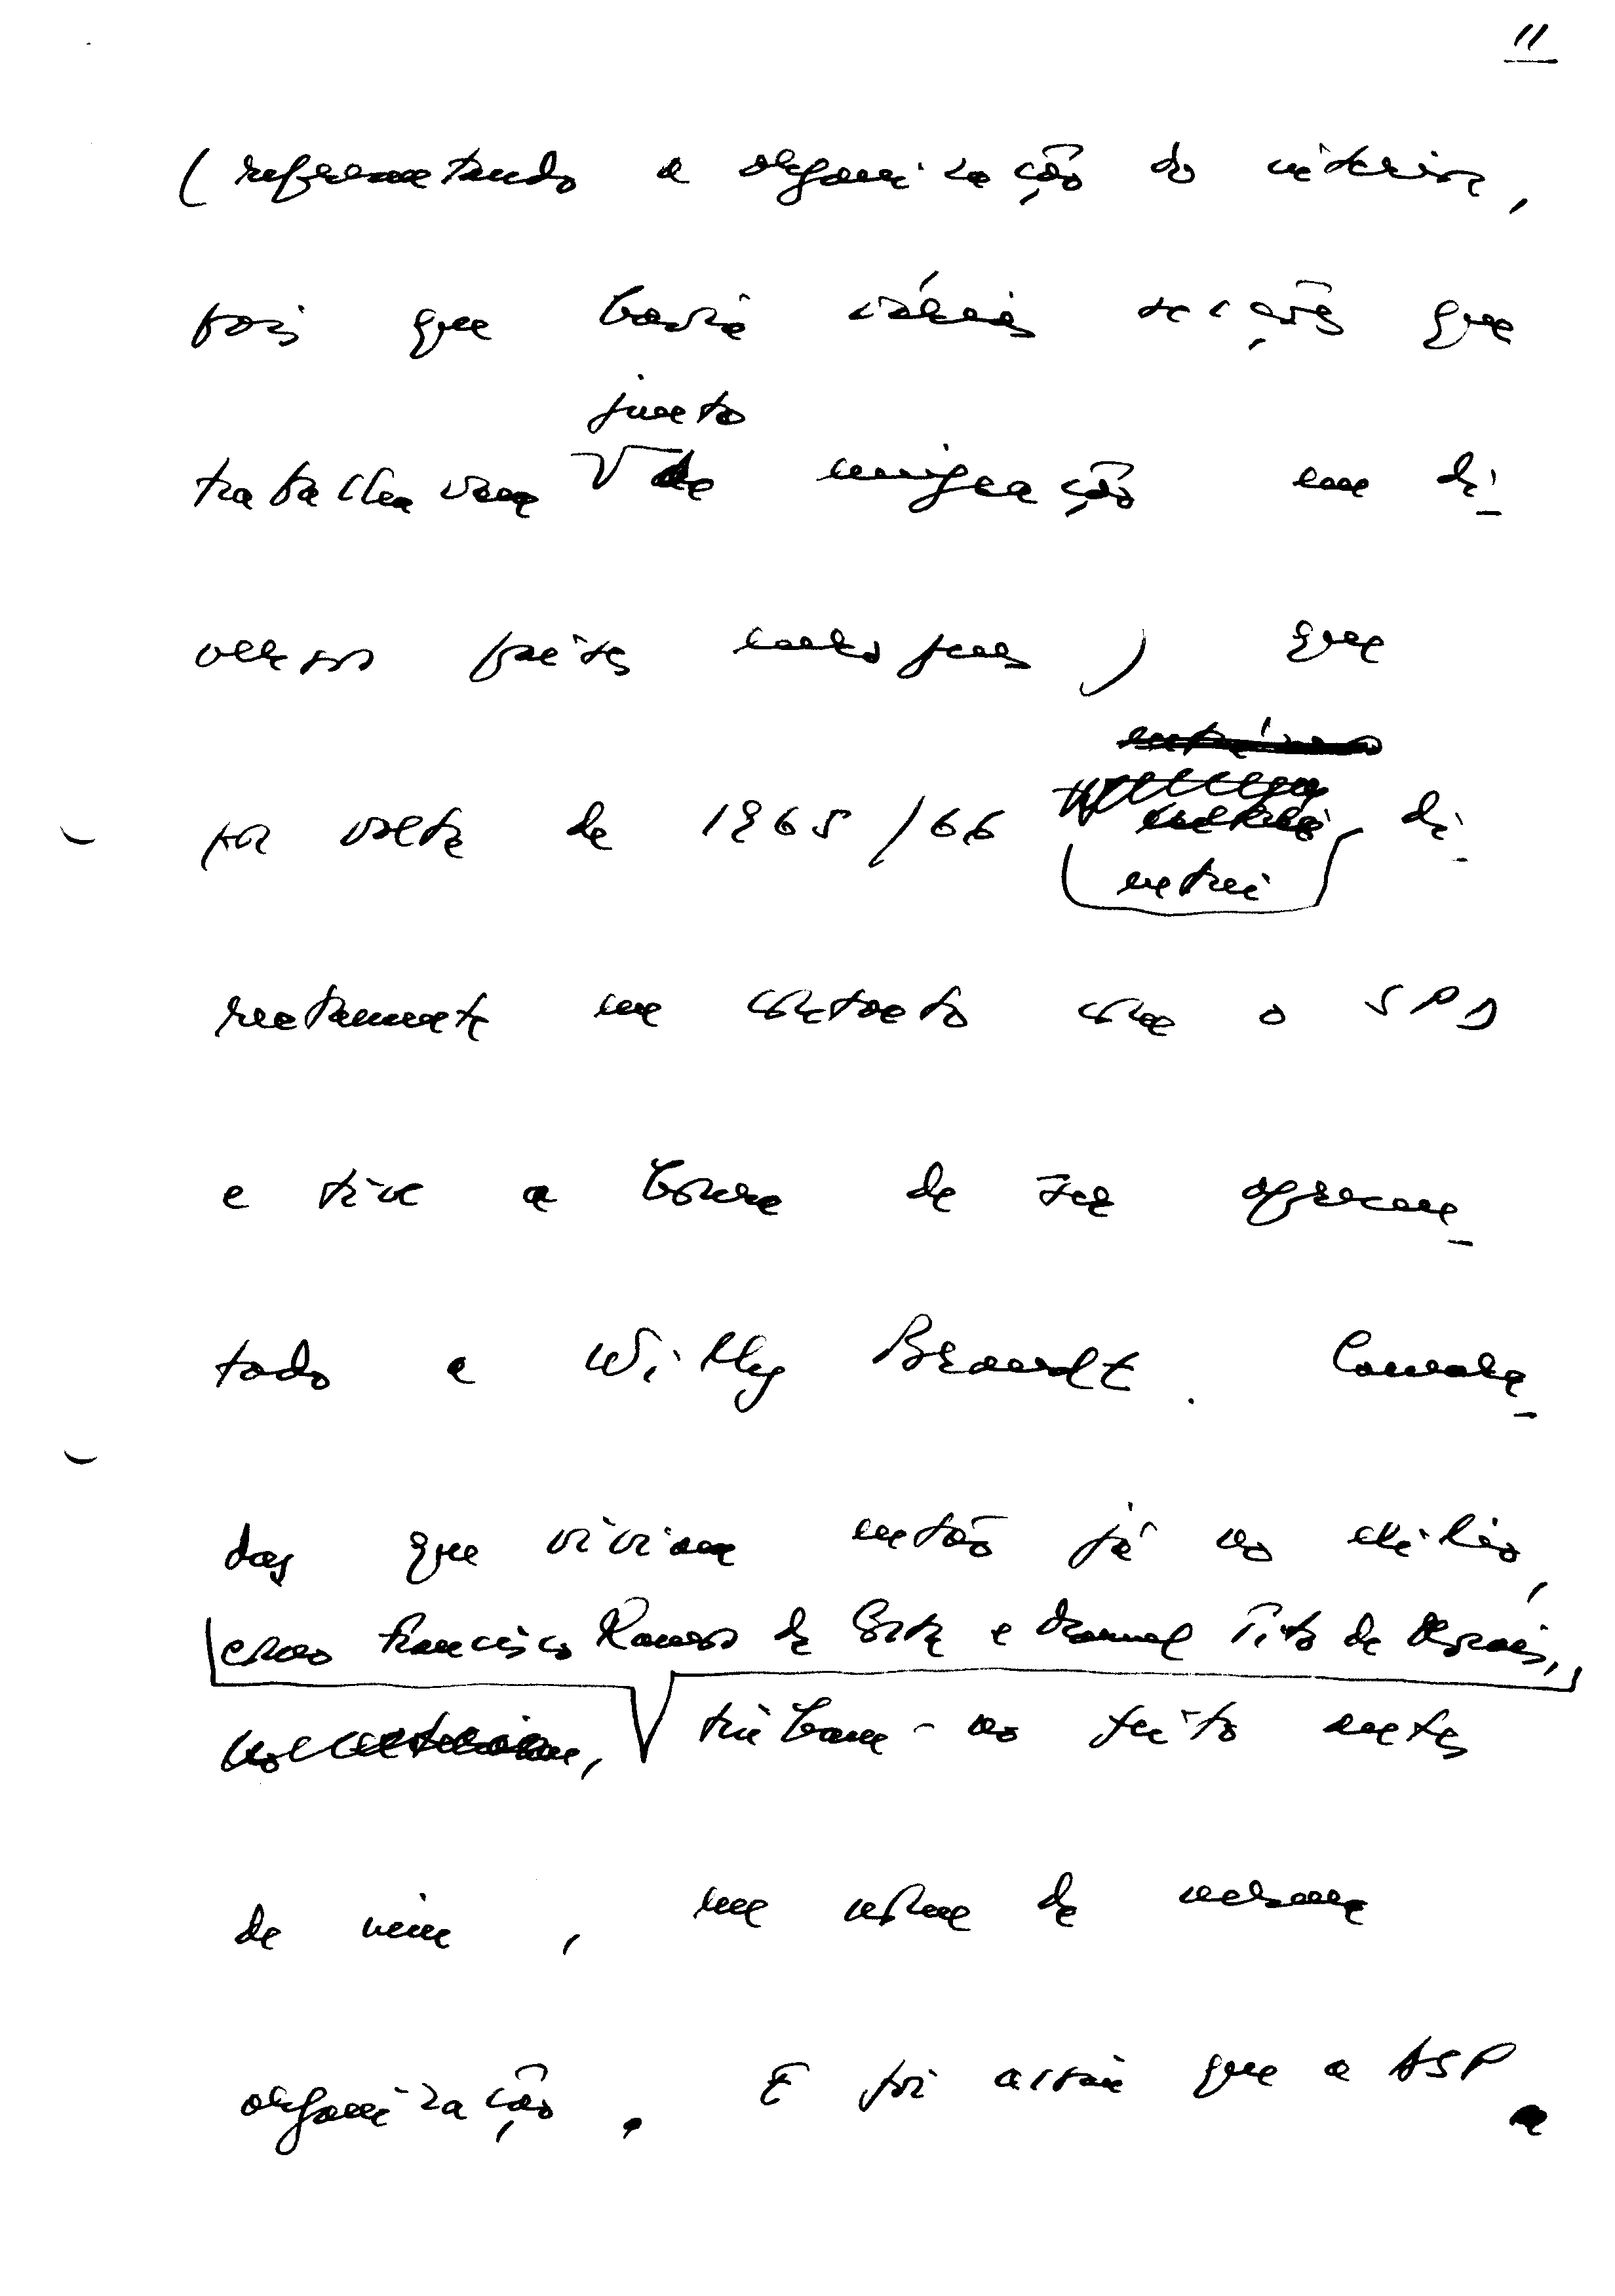 11
(representando a organização do interior,
pois que havia várias secções que
junto
trabalhavam da emigração em di-
versos países europeus) que
por volta de 1965/66 di-
entrei
rectamente em contacto com o SPD
e tive a honra de ser apresen-
tado a Willy Brandt. Camara-
das que viviam então já no exílio,
como Francisco Ramos da Costa e Manuel Tito de Morais,
tinham-no feito antes
de mim, em nome da mesma
organização. E foi assim que a ASP